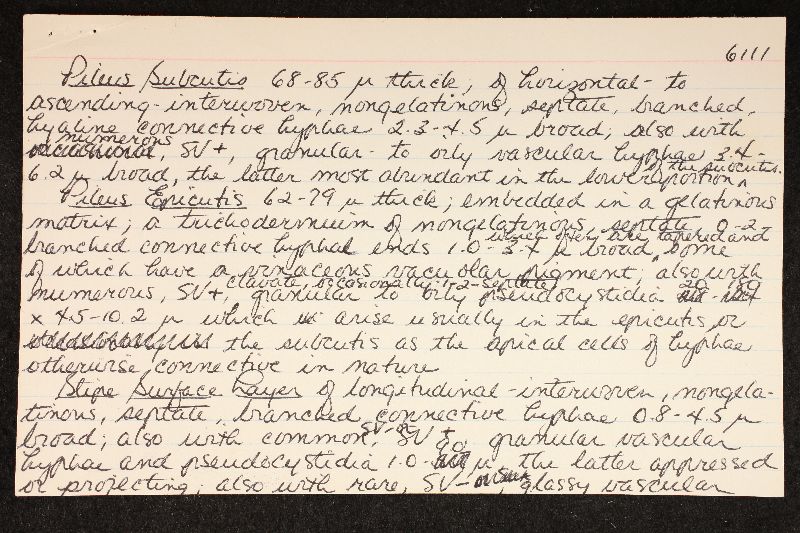 6111
Pileus Subcutis 68-85 µ thick; of horizontal- to
ascending-interwoven, nongelatinous, septate, branched,
hyaline connective hyphae 2.3-4.5 µ broad; also with
numerous, SV+, granular- to oily vascular hyphae 3.4-
6.2 µ broad, the latter most abundant in the lower portion of the subcutis.
Pileus Epicutis 62-79 µ thick; embedded in a gelatinous
matrix; a trichodermium of nongelatinous, septate, 0-2
branched connective hyphal ends 1.0-3.4 µ broad, which often are tapered and some
of which have a vinaceous vacuolar pigment; also with
numerous, SV+, clavate, occasionally 1-2-septate, granular to oily pseudocystidia
× 4.5-10.2 µ which arise usually in the epicutis or
the subcutis as the apical cells of hyphae
otherwise connective in nature
Stipe Surface Layer of longitudinal-interwoven, nongela-
tinous, septate, branched connective hyphae 0.8-4.5 µ
broad; also with common, SV+ granular vascular
hyphae and pseudocystidia µ, the latter appressed
or projecting; also with rare, SV- glassy vascular